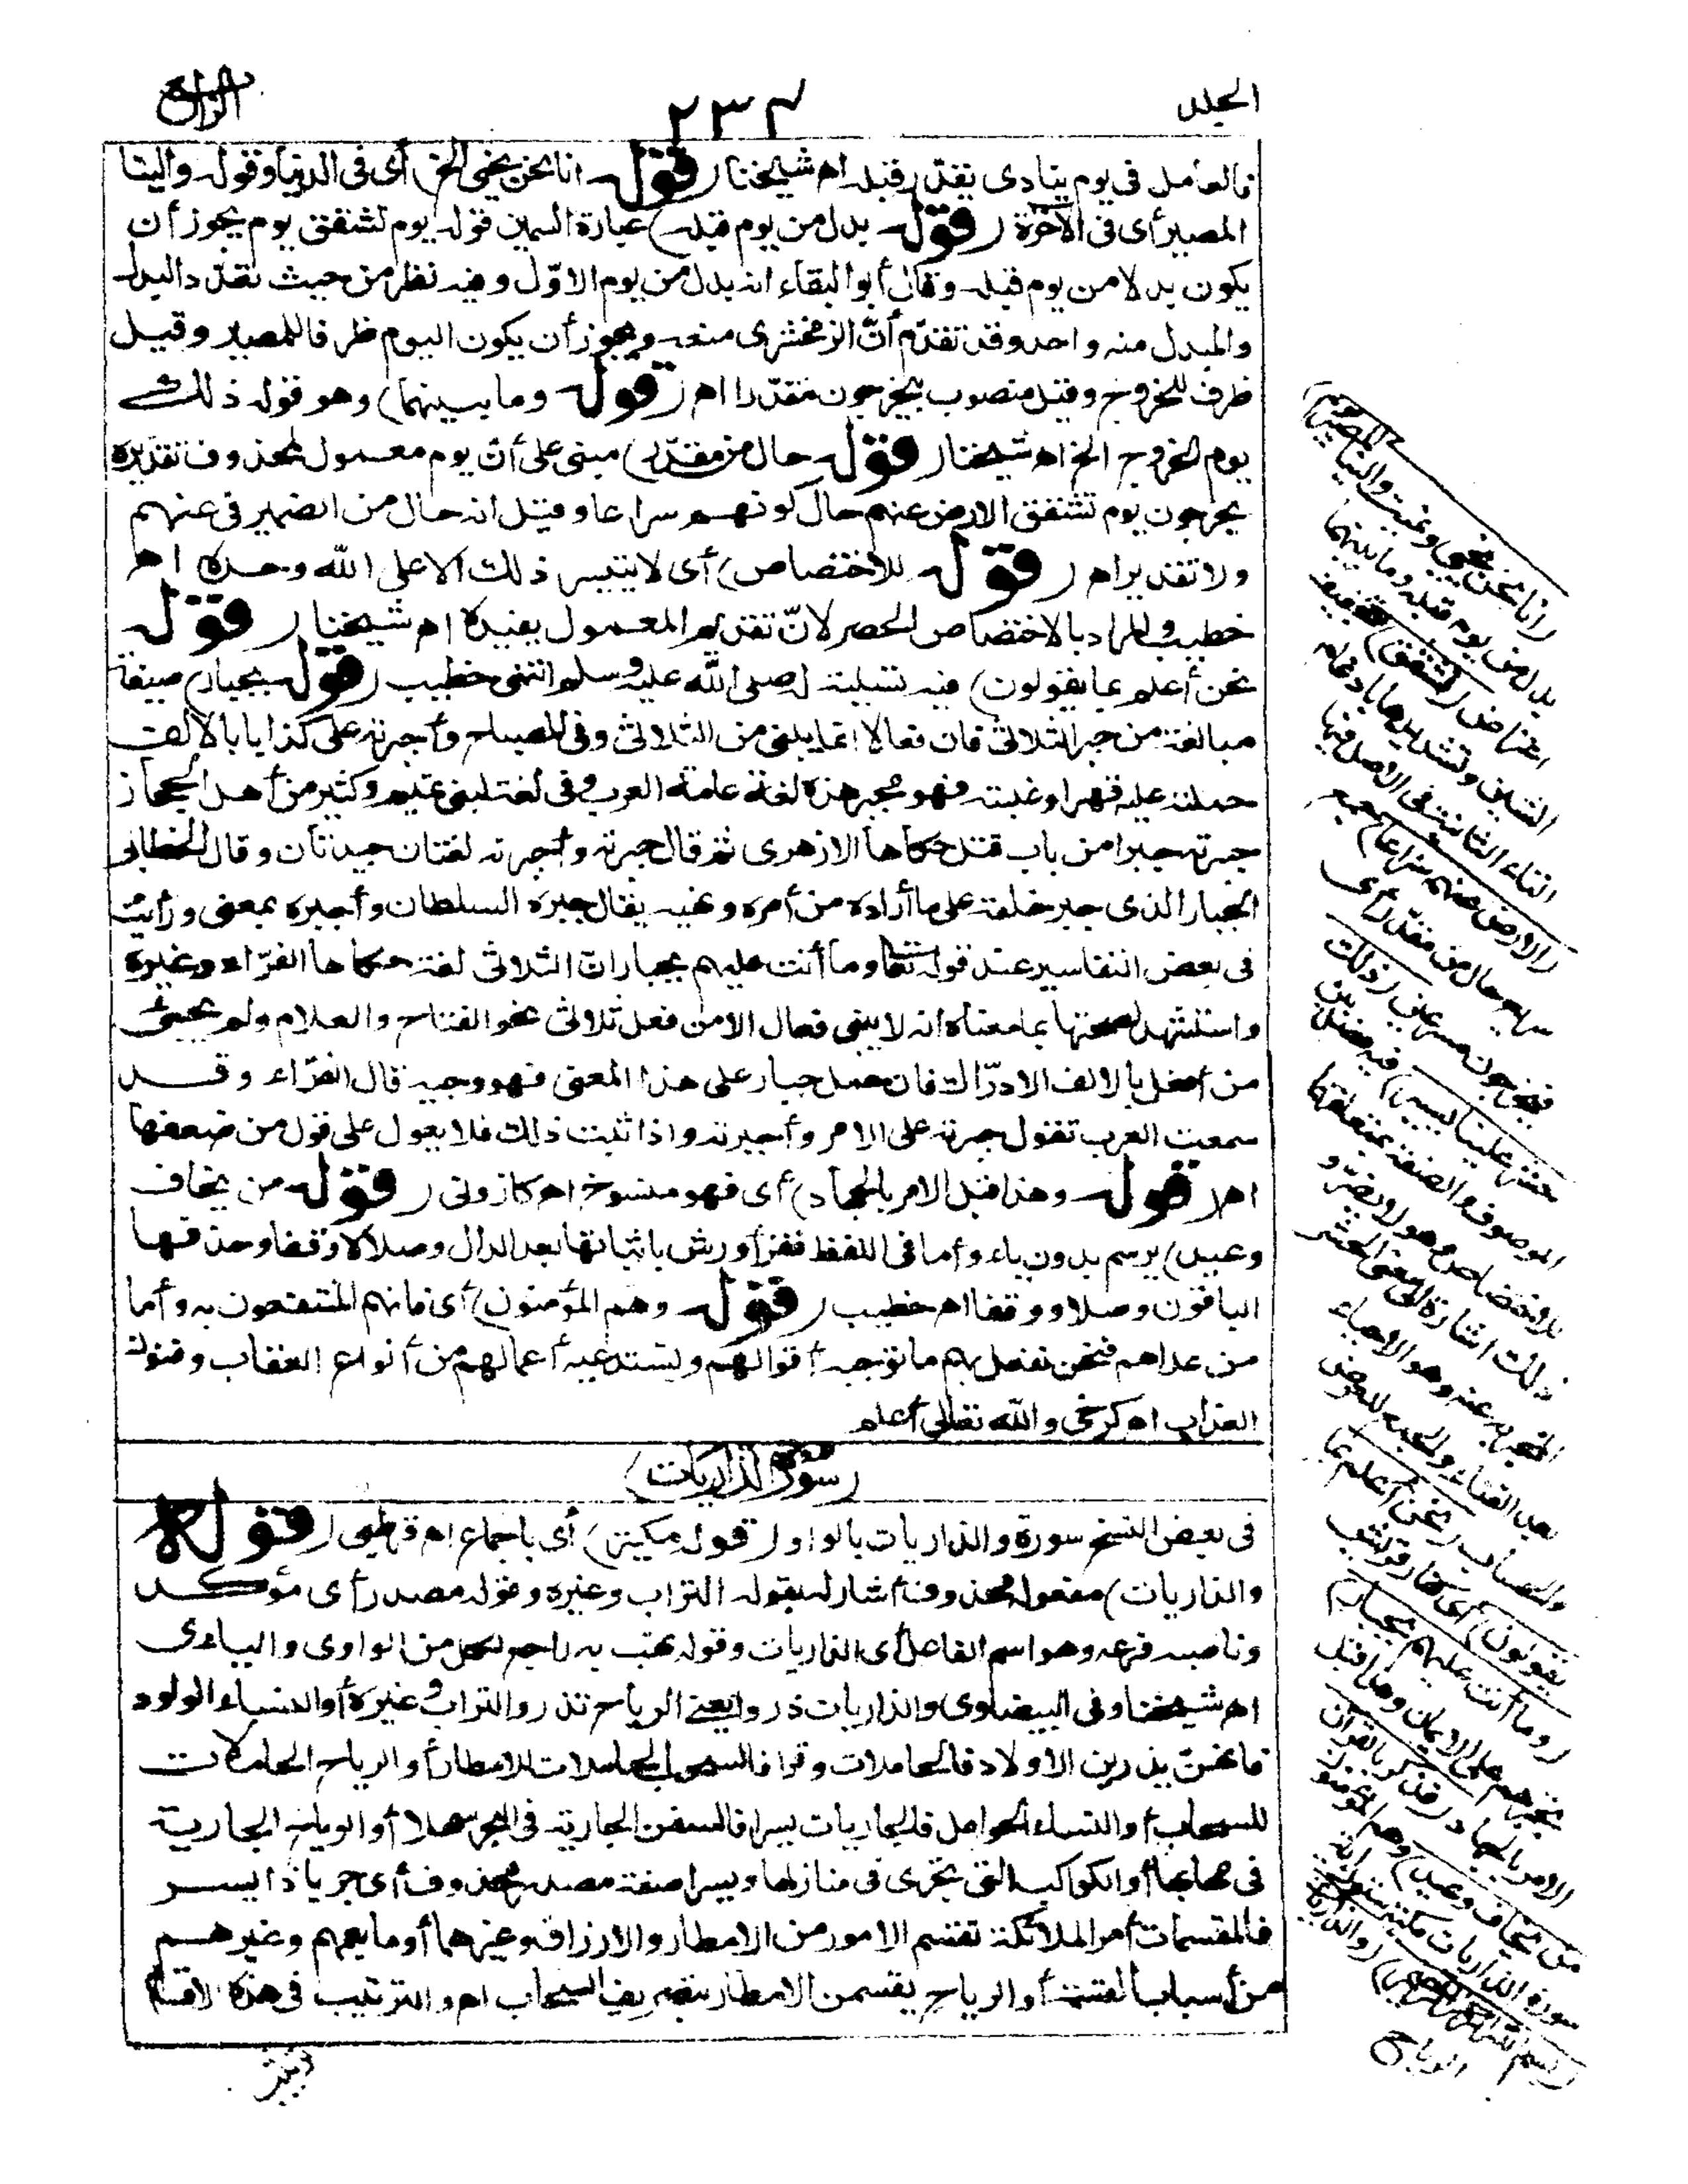 الجلد
٢٣٤
الرابع
فالعامل فى يوم ينادى يقدر قبله اه شيخنا (قوله انا نحن نحيى الخ) أى فى الدنيا وقوله والينا
المصير أى فى الآخرة (قوله بدل من يوم قبله) عبارة السمين قوله يوم تشقق يوم يجوز أن
يكون بدلا من يوم قبله وقال أبو البقاء انه بدل من يوم الاوّل وفيه نظر من حيث تعدد البدل
والمبدل منه واحد وقد تقدّم أنّ الزمخشرى منعه ويجوز أن يكون اليوم ظرفا للمصير وقيل
ظرف للخروج وقيل منصوب بيخرجون مقدّرا اه (قوله وما بينهما) وهو قوله ذلك
يوم الخروج الخ اه شيخنا (قوله حال من مقدّر) مبنى على أنّ يوم معمول لمحذوف تقديره
يخرجون يوم تشقق الارض عنهم حال كونهم سراعا وقيل انه حال من الضمير فى عنهم
ولا تقدير اه (قوله للاختصاص) أى لا يتيسر ذلك الا على الله وحده اه
خطيب والمراد بالاختصاص الحصر لانّ تقديم المعمول يفيده اه شيخنا (قوله
نحن أعلم بما يقولون) فيه تسلية له صلى الله عليه وسلم انتهى خطيب (قوله بجبار) صيغة
مبالغة من جبر الثلاثى فان فعالا انما يبنى من الثلاثى وفى المصباح وأجبرته على كذا بالالف
حملته عليه قهرا وغلبته فهو مجبر هذه لغة عامة العرب وفى لغة لبنى تميم وكثير من أهل الحجاز
جبرته جبرا من باب قتل حكاها الازهرى ثم قال جبرته وأجبرته لغتان جيدتان وقال الخطابى
الجبار الذى جبر خلقه على ما أراده من أمره ونهيه يقال جبره السلطان وأجبره بمعنى ورأيت
فى بعض التفاسير عند قوله تعالى وما أنت عليهم بجبار انّ الثلاثى لغة حكاها الفرّاء وغيره
واستشهد لصحتها بما معناه انه لا يبنى فعال الا من فعل ثلاثى نحو الفتاح والعلام ولم يجئ
من أفعل بالالف الا درّاك فان حمل جبار على هذا المعنى فهو وجيه قال الفرّاء وقد
سمعت العرب تقول جبرته على الامر وأجبرته واذا ثبت ذلك فلا يعول على قول من ضعفها
اه (قوله وهذا قبل الامر بالجهاد) أى فهو منسوخ اه كازرونى (قوله من يخاف
وعيد) يرسم بدون ياء وأما فى اللفظ فقرأ ورش باثباتها بعد الدال وصلا لا وقفا وحذفها
الباقون وصلا ووقفا اه خطيب (قوله وهم المؤمنون) أى فانهم المنتفعون به وأما
من عداهم فنحن نفعل بهم ما توجبه أقوالهم وتستدعيه أعمالهم من أنواع العقاب وفنون
العذاب اه كرخى والله تعالى أعلم
(سورة الذاريات)
فى بعض النسخ سورة والذاريات بالواو (قوله مكية) أى باجماع اه قرطبى (قوله
والذاريات) مفعوله محذوف أشار له بقوله التراب وغيره وقوله مصدر أى مؤكد
وناصبه فرعه وهو اسم الفاعل أى الذاريات وقوله تهب به راجع لكل من الواوى واليائى
اه شيخنا وفى البيضاوى والذاريات ذروا يعنى الرياح تذرو التراب وغيره أو النساء الولود
فانهنّ يذرين الاولاد فالحاملات وقرا فالسحب الحاملات للامطار أو الرياح الحاملات
للسحاب أو النساء الحوامل فالجاريات يسرا فالسفن الجارية فى البحر سهلا أو الرياح الجارية
فى مهابها أو الكواكب التى تجرى فى منازلها ويسرا صفة مصدر محذوف أى جريا ذا يسر
فالمقسمات أمرا الملائكة تقسم الامور من الامطار والارزاق وغيرهما أو ما يعمهم وغيرهم
من أسباب القسمة أو الرياح يقسمن الامطار بتصريف السحاب اه والترتيب فى هذه الاقسام
(انا نحن نحيى ونميت والينا المصير)
بدل من يوم قبله وما بينهما
اعتراض (تشقق) بتخفيف
الشين وتشديدها بادغام
التاء الثانية فى الاصل فيها
(الارض عنهم سراعا) جمع
سريع حال من مقدّر أى
فيخرجون مسرعين (ذلك
حشر علينا يسير) فيه فصل بين
الموصوف والصفة بمتعلقها
للاختصاص وهو لا يضر و
ذلك اشارة الى معنى الحشر
المخبر به عنه وهو الاحياء
بعد الفناء والجمع للعرض
والحساب (نحن أعلم بما
يقولون) أى كفار قريش
(وما أنت عليهم بجبار)
تجبرهم على الايمان وهذا قبل
الامر بالجهاد (فذكر بالقرآن
من يخاف وعيد) وهم المؤمنون
سورة الذاريات مكية ستون آية
(بسم الله الرحمن الرحيم) (والذاريات)
الرياح